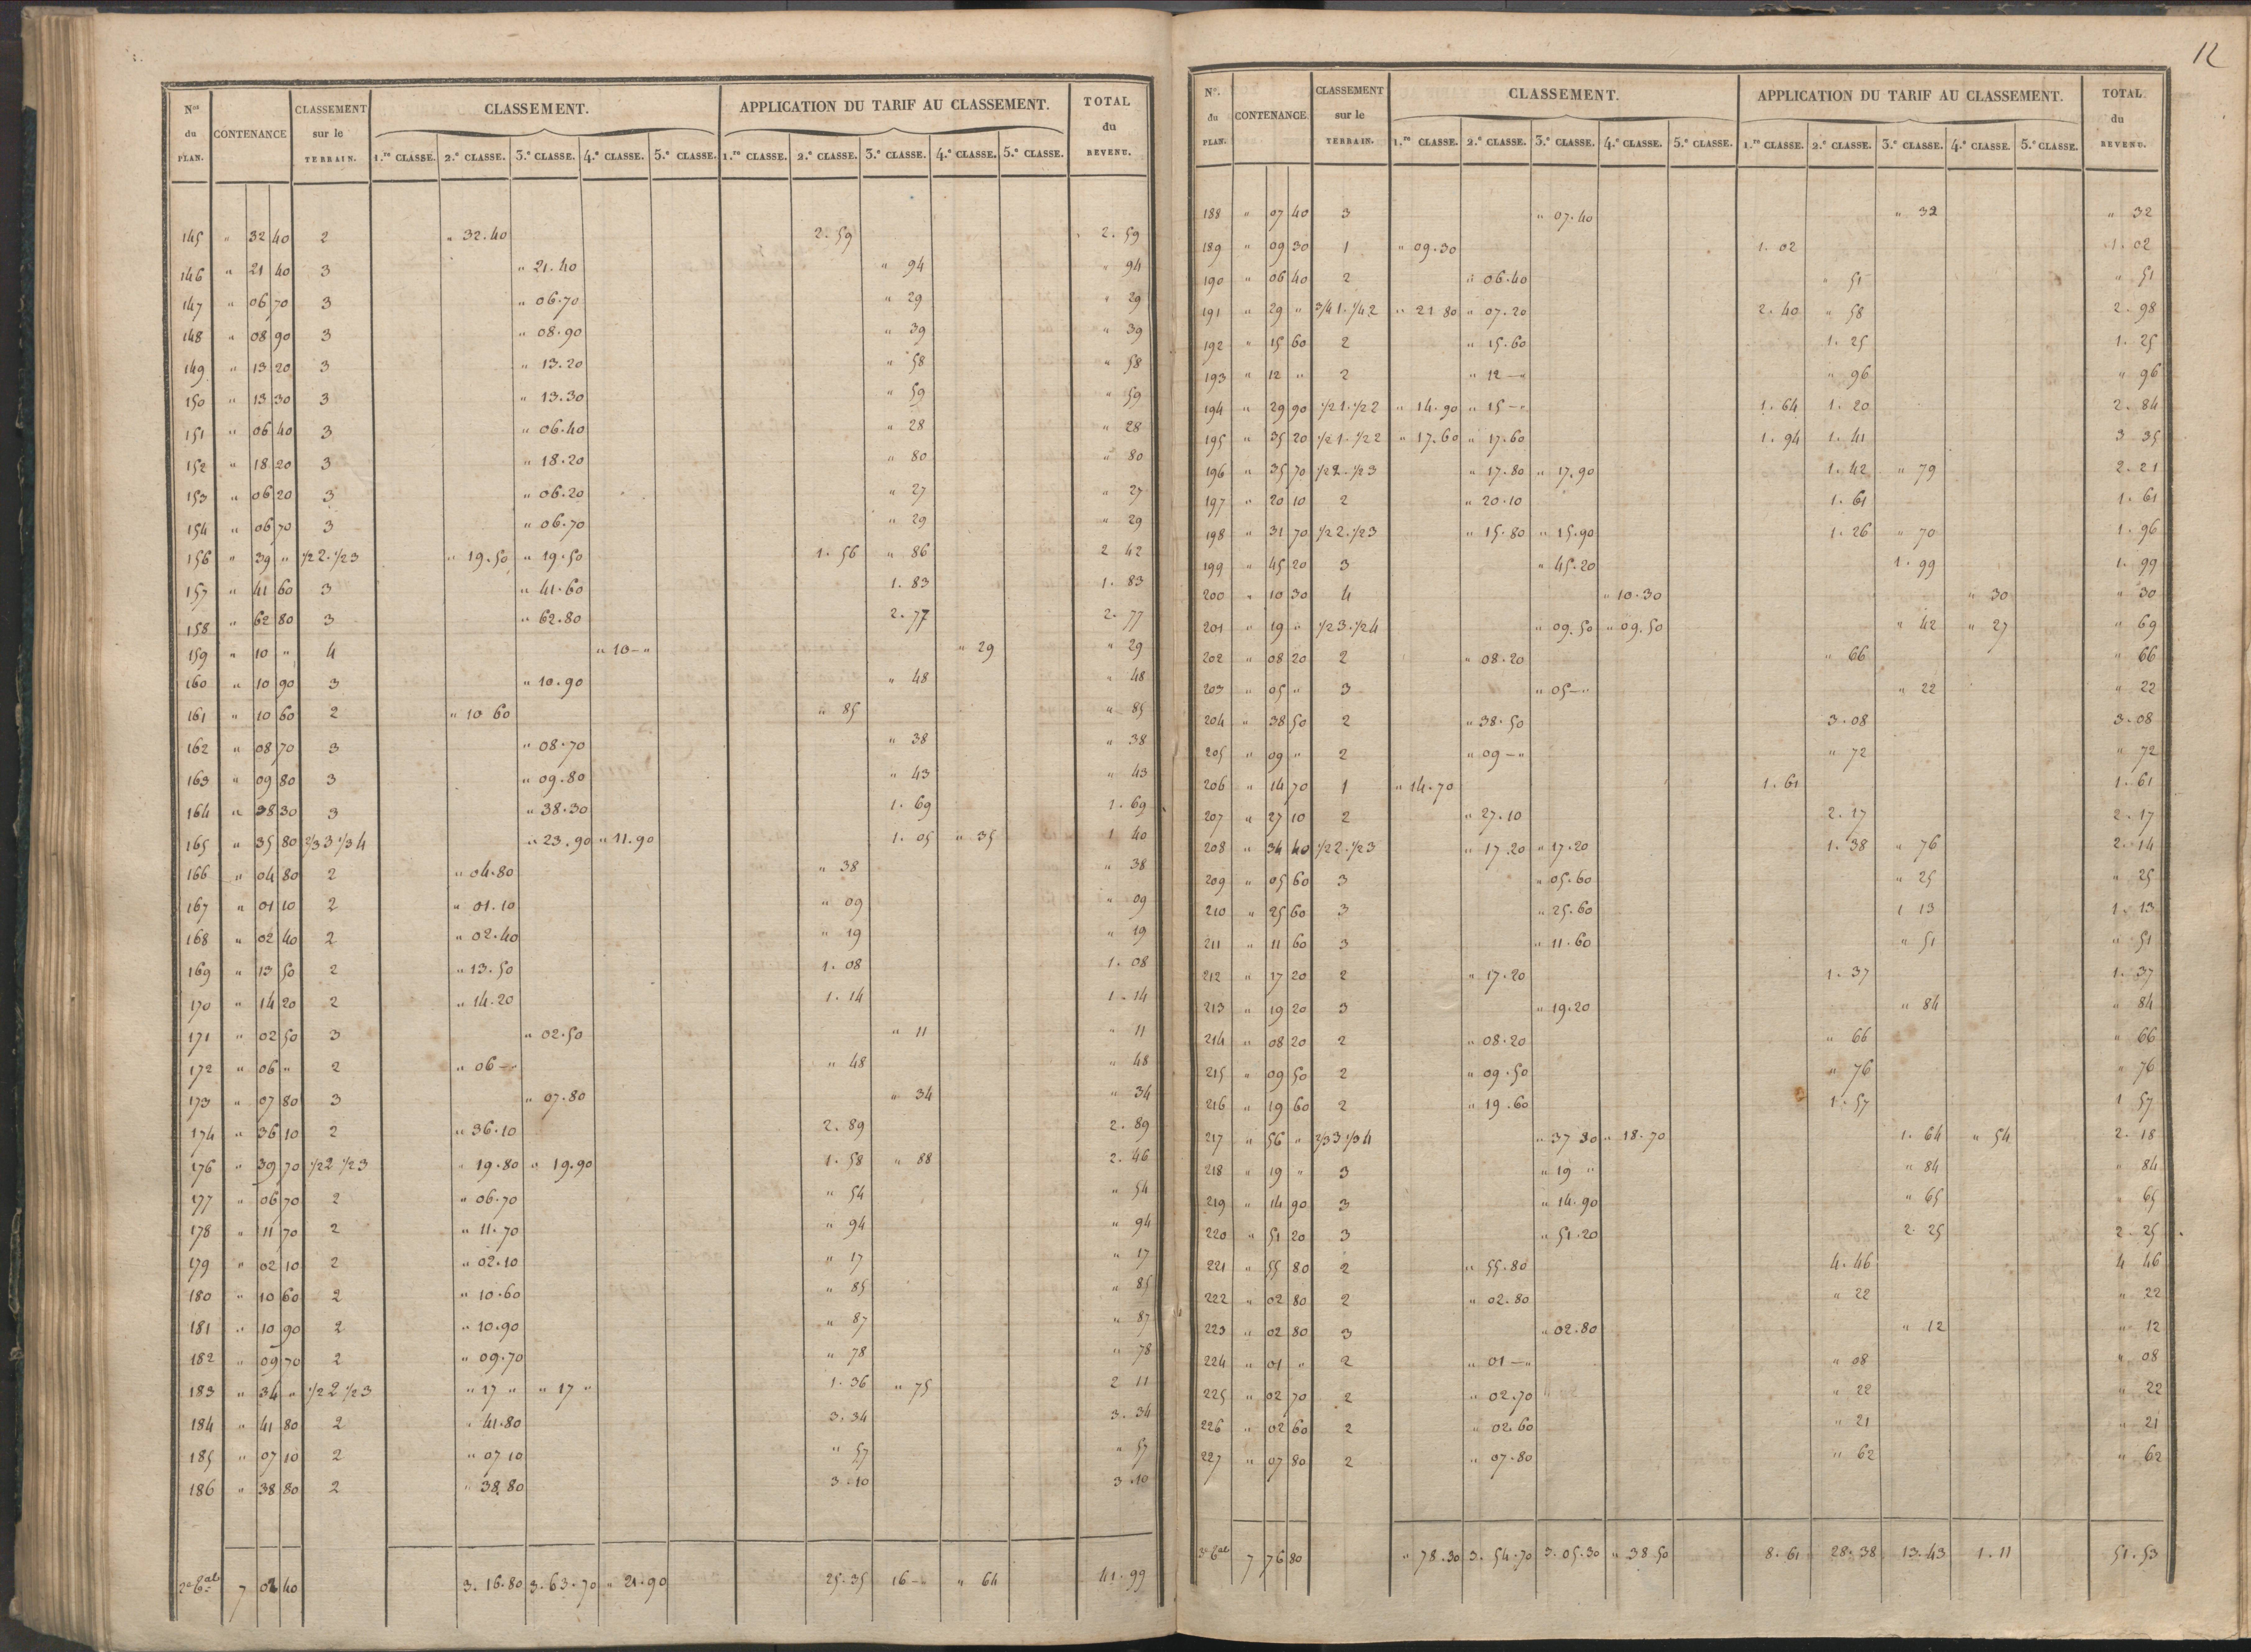 12
Nos du PLAN. CONTENANCE CLASSEMENT sur le TERRAIN. CLASSEMENT. APPLICATION DU TARIF AU CLASSEMENT. TOTAL du REVENU.
1.re CLASSE. 2.e CLASSE. 3.e CLASSE. 4.e CLASSE. 5.e CLASSE. 1.re CLASSE. 2.e CLASSE. 3.e CLASSE. 4.e CLASSE. 5.e CLASSE.
145 " 32 40 2 " 32.40 2.59 2.59
146 " 21 40 3 " 21.40 " 94 " 94
147 " 06 70 3 " 06.70 " 29 " 29
148 " 08 90 3 " 08.90 " 39 " 39
149 " 13 20 3 " 13.20 " 58 " 58
150 " 13 30 3 " 13.30 " 59 " 59
151 " 06 40 3 " 06.40 " 28 " 28
152 " 18 20 3 " 18.20 " 80 " 80
153 " 06 20 3 " 06.20 " 27 " 27
154 " 06 70 3 " 06.70 " 29 " 29
156 " 39 " 1/2 2. 1/2 3 " 19.50 " 19.50 1.56 " 86 2 42
157 " 41 60 3 " 41.60 1.83 1.83
158 " 62 80 3 " 62.80 2.77 2.77
159 " 10 " 4 " 10 - " " 29 " 29
160 " 10 90 3 " 10.90 " 48 " 48
161 " 10 60 2 " 10 60 " 85 " 85
162 " 08 70 3 " 08.70 " 38 " 38
163 " 09 80 3 " 09.80 " 43 " 43
164 " 38 30 3 " 38.30 1.69 1.69
165 " 35 80 2/3 3 1/3 4 " 23.90 " 11.90 1.05 " 35 1 40
166 " 04 80 2 " 04.80 " 38 " 38
167 " 01 10 2 " 01.10 " 09 " 09
168 " 02 40 2 " 02.40 " 19 " 19
169 " 13 50 2 " 13.50 1.08 1.08
170 " 14 20 2 " 14.20 1.14 1.14
171 " 02 50 3 " 02.50 " 11 " 11
172 " 06 " 2 " 06 - " " 48 " 48
173 " 07 80 3 " 07.80 " 34 " 34
174 " 36 10 2 " 36.10 2.89 2.89
176 " 39 70 1/2 2 1/2 3 " 19.80 " 19.90 1.58 " 88 2.46
177 " 06 70 2 " 06.70 " 54 " 54
178 " 11 70 2 " 11.70 " 94 " 94
179 " 02 10 2 " 02.10 " 17 " 17
180 " 10 60 2 " 10.60 " 85 " 85
181 " 10 90 2 " 10.90 " 87 " 87
182 " 09 70 2 " 09.70 " 78 " 78
183 " 34 " 1/2 2 1/2 3 " 17 " " 17 " 1.36 " 75 2 11
184 " 41 80 2 " 41.80 3.34 3.34
185 " 07 10 2 " 07 10 " 57 " 57
186 " 38 80 2 " 38.80 3.10 3.10
7 02 40 3.16.80 3.63.70 " 21.90 25.35 16 - " " 64 41.99
No. du PLAN. CONTENANCE CLASSEMENT sur le TERRAIN. CLASSEMENT. APPLICATION DU TARIF AU CLASSEMENT. TOTAL du REVENU.
1.re CLASSE. 2.e CLASSE. 3.e CLASSE. 4.e CLASSE. 5.e CLASSE. 1.re CLASSE. 2.e CLASSE. 3.e CLASSE. 4.e CLASSE. 5.e CLASSE.
188 " 07 40 3 " 07.40 " 32 " 32
189 " 09 30 1 " 09.30 1.02 1.02
190 " 06 40 2 " 06.40 " 51 " 51
191 " 29 " 3/4 1. 1/4 2 " 21 80 " 07.20 2.40 " 58 2.98
192 " 15 60 2 " 15.60 1.25 1.25
193 " 12 " 2 " 12 - " " 96 " 96
194 " 29 90 1/2 1. 1/2 2 " 14.90 " 15 - " 1.64 1.20 2.84
195 " 35 20 1/2 1. 1/2 2 " 17.60 " 17.60 1.94 1.41 3 35
196 " 35 70 1/2 2. 1/2 3 " 17.80 " 17.90 1.42 " 79 2.21
197 " 20 10 2 " 20.10 1.61 1.61
198 " 31 70 1/2 2. 1/2 3 " 15.80 " 15.90 1.26 " 70 1.96
199 " 45 20 3 " 45.20 1.99 1.99
200 " 10 30 4 " 10.30 " 30 " 30
201 " 19 " 1/2 3. 1/2 4 " 09.50 " 09.50 " 42 " 27 " 69
202 " 08 20 2 " 08.20 " 66 " 66
203 " 05 " 3 " 05 - " " 22 " 22
204 " 38 50 2 " 38.50 3.08 3.08
205 " 09 " 2 " 09 - " " 72 " 72
206 " 14 70 1 " 14.70 1.61 1.61
207 " 27 10 2 " 27.10 2.17 2.17
208 " 34 40 1/2 2. 1/2 3 " 17.20 " 17.20 1.38 " 76 2.14
209 " 05 60 3 " 05.60 " 25 " 25
210 " 25 60 3 " 25.60 1 13 1.13
211 " 11 60 3 " 11.60 " 51 " 51
212 " 17 20 2 " 17.20 1.37 1.37
213 " 19 20 3 " 19.20 " 84 " 84
214 " 08 20 2 " 08.20 " 66 " 66
215 " 09 50 2 " 09.50 " 76 " 76
216 " 19 60 2 " 19.60 1.57 1 57
217 " 56 " 2/3 3 1/3 4 " 37 30 " 18.70 1.64 " 54 2.18
218 " 19 " 3 " 19 " " 84 " 84
219 " 14 90 3 " 14.90 " 65 " 65
220 " 51 20 3 " 51.20 2.25 2.25
221 " 55 80 2 " 55.80 4.46 4 46
222 " 02 80 2 " 02.80 " 22 " 22
223 " 02 80 3 " 02.80 " 12 " 12
224 " 01 " 2 " 01 - " " 08 " 08
225 " 02 70 2 " 02.70 " 22 " 22
226 " 02 60 2 " 02.60 " 21 " 21
227 " 07 80 2 " 07.80 " 62 " 62
7 76 80 " 78.30 3.54.70 3.05.30 " 38 50 8.61 28.38 13.43 1.11 51.53